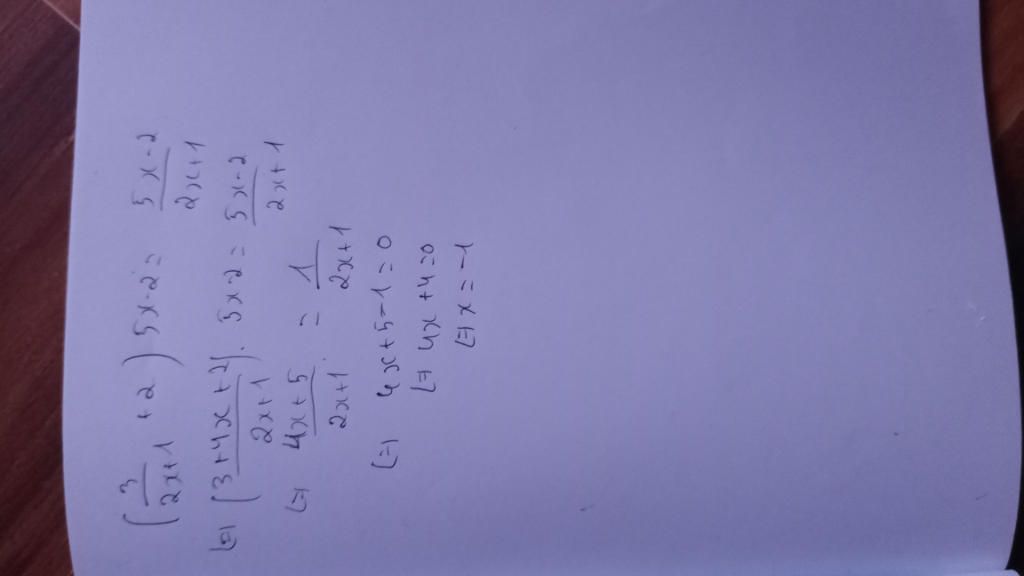 (3/(2x+1) + 2) 5x-2 = (5x-2)/(2x+1)
(=) ((3+4x+2)/(2x+1)) . 5x-2 = (5x-2)/(2x+1)
(=) (4x+5)/(2x+1) = 1/(2x+1)
(=) 4x+5-1=0
(=) 4x+4=0
(=) x=-1